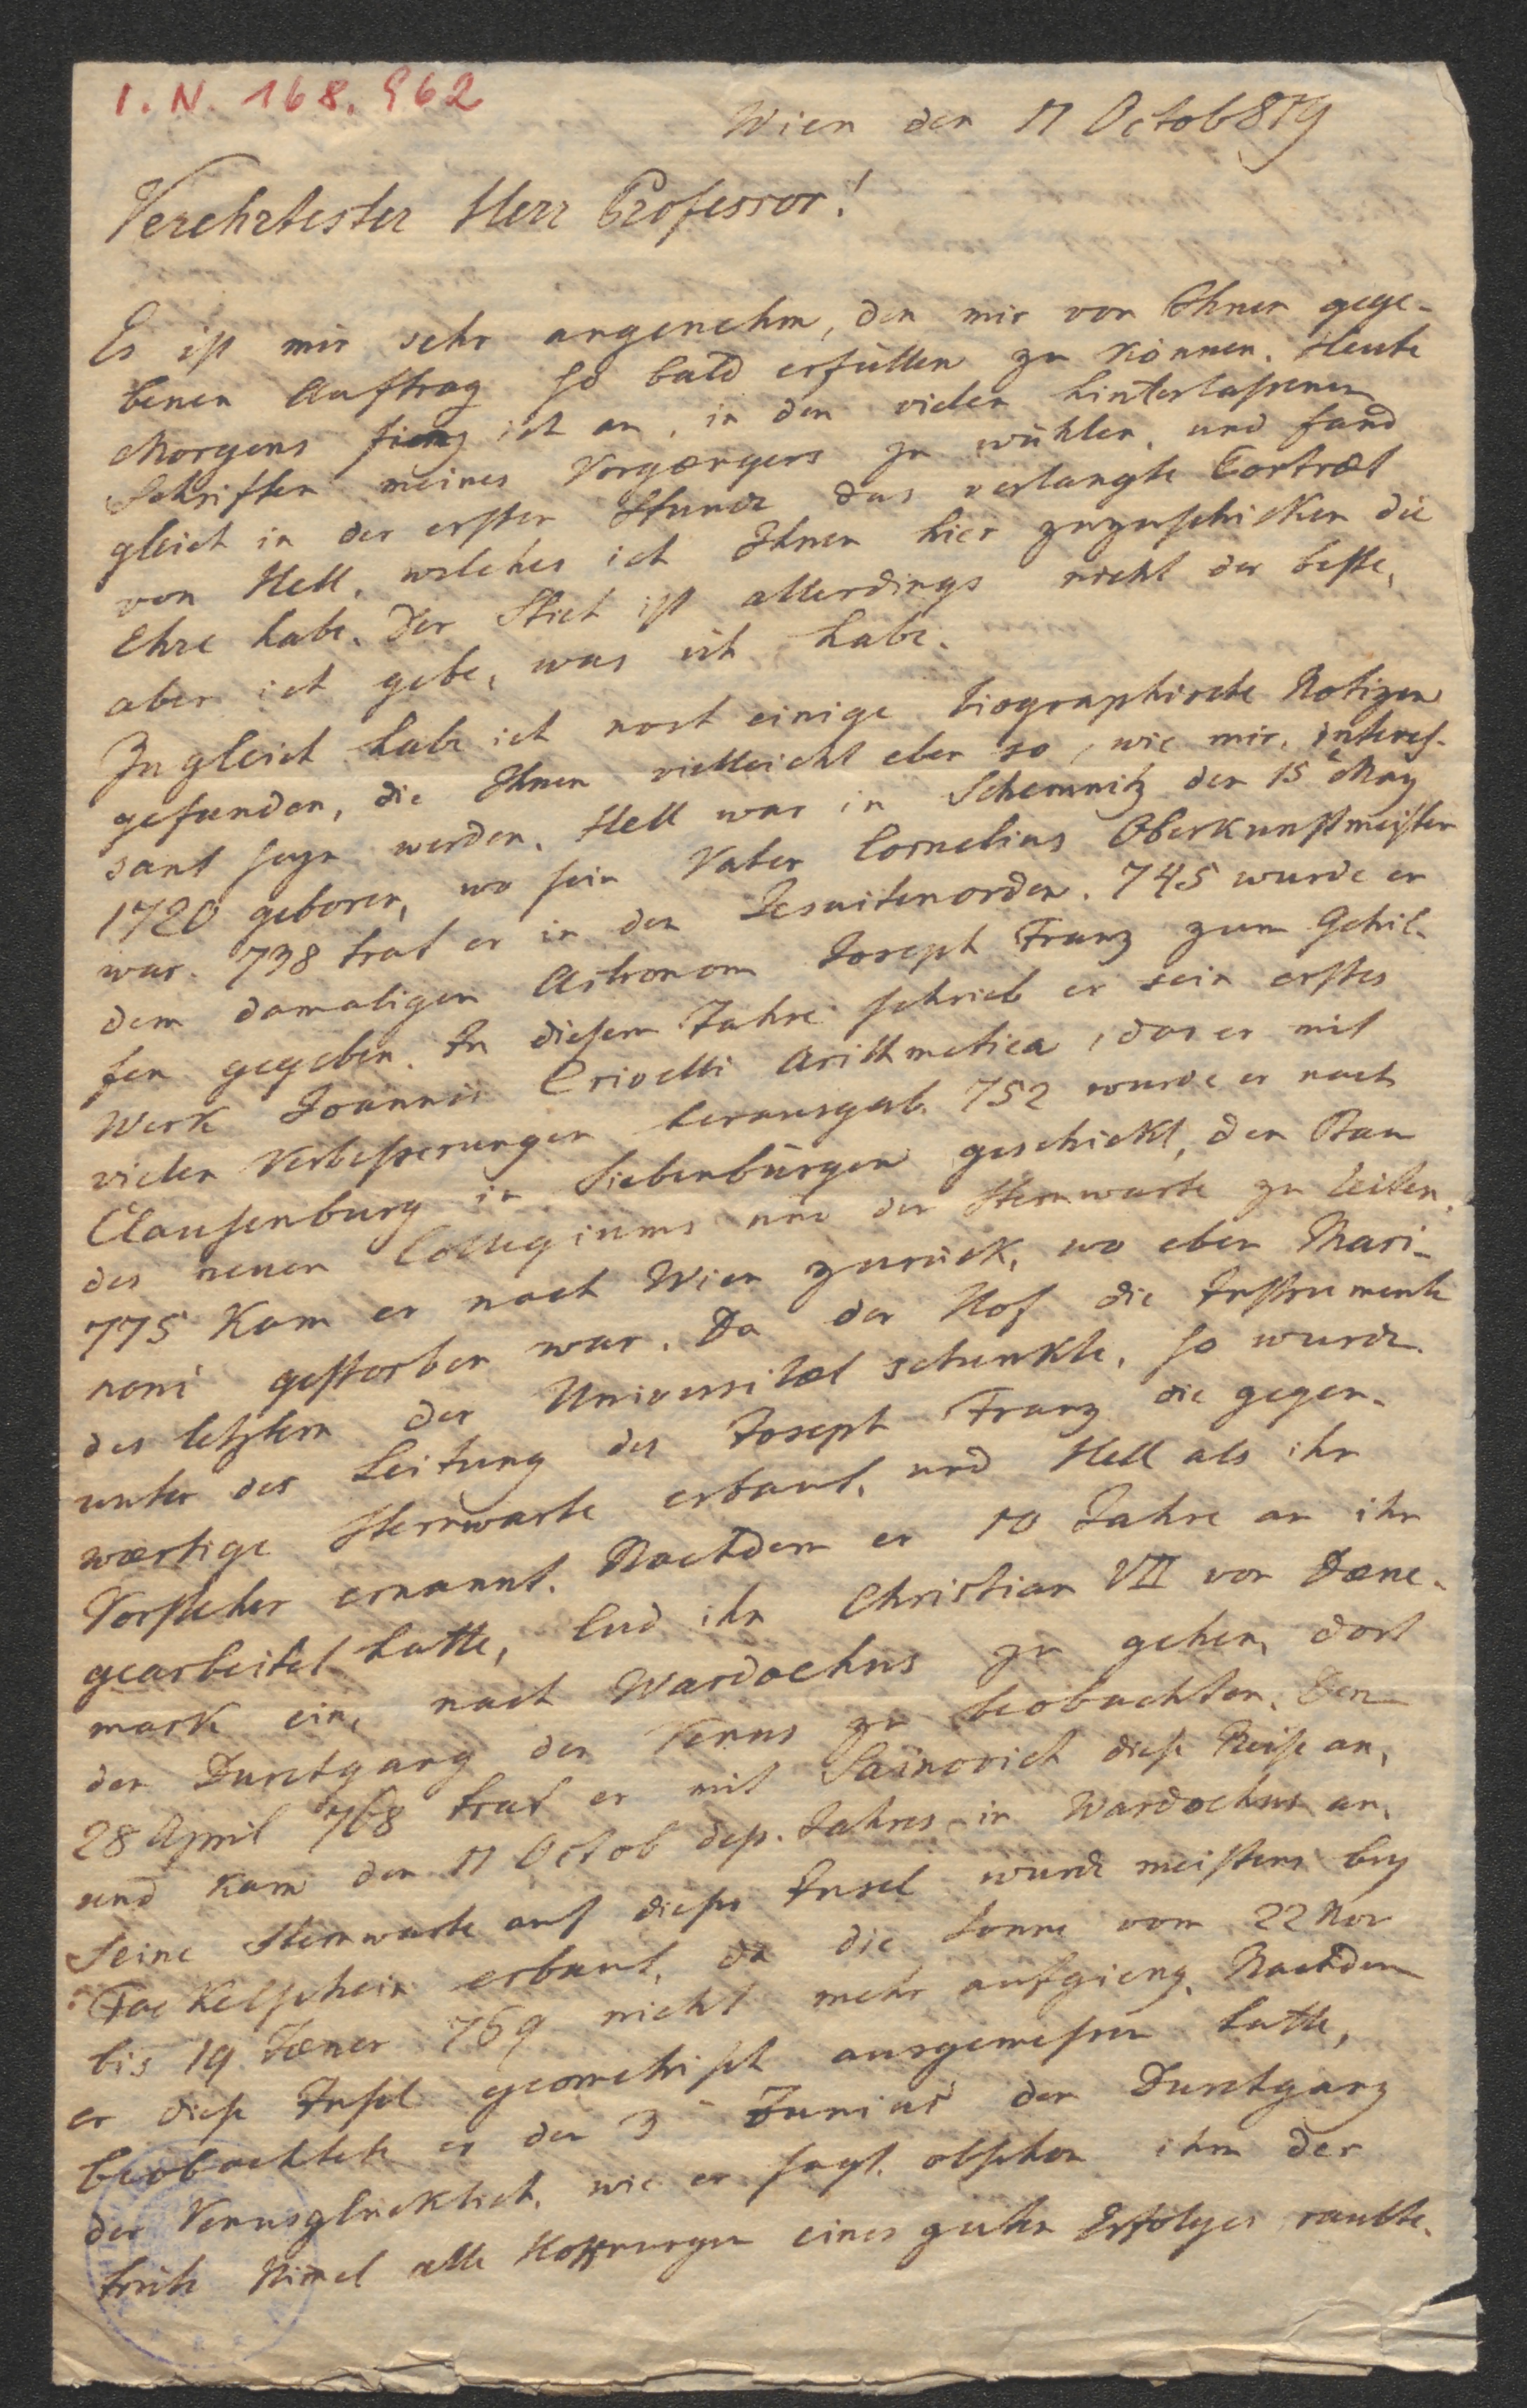 I. N. 168.962
Wien den 11 Octob 819
Verehrtester Herr Professor!
Es ist mir sehr angenehm, den mir von Ihnen gege-
benen Auftrag so bald erfüllen zu können. Heute
Morgens fieng ich an, in den vielen hinterlassenen
Schriften meines Vorgængers zu wühlen, und fand
gleich in der ersten Stunde das verlangte Portræt
von Hell, welches ich Ihnen hier zuzuschicken die
Ehre habe. Der Stich ist allerdings nicht der beste,
aber ich gebe, was ich habe.
Zugleich habe ich noch einige biographische Notizen
gefunden, die Ihnen vielleicht eben so, wie mir, interes-
sant seyn werden. Hell war in Schemnitz den 15 May
1720 geboren, wo sein Vater Cornelius Oberkunstmeister
war. 738 trat er in den Jesuitenorden. 745 wurde er
dem damaligen Astronom Joseph Franz zum Gehil-
fen gegeben. In diesem Jahre schrieb er sein erstes
Werk Joannis Crivelli Arithmetica, das er mit
vielen Verbesserungen herausgab. 752 wurde er nach
Clausenburg in Siebenbürgen geschickt, den Bau
des neuen Collegiums und der Sternwarte zu leiten.
775 kam er nach Wien zurück, wo eben Mari-
noni gestorben war. Da der Hof die Instrumente
des letztern der Universitæt schenkte, so wurde
unter der Leitung des Joseph Franz die gegen-
wærtige Sternwarte erbaut, und Hell als ihr
Vorsteher ernannt. Nachdem er 10 Jahre an ihr
gearbeitet hatte, lud ihn Christian VII von Dæne-
mark ein, nach Wardoehus zu gehen, dort
den Durchgang der Venus zu beobachten. Den
28 April 768 trat er mit Sainovich diese Reise an,
und kam den 11 Octob dess. Jahres in Wardoehus an.
Seine Sternwarte auf dieser Insel wurde meistens bey
Fackelschein erbaut, da die Sonne vom 22 Nov
bis 19 Jæner 769 nicht mehr aufgieng. Nachdem
er diese Insel geometrisch ausgemessen hatte,
beobachtete er den 3 Junius den Durchgang
der Venus glücklich, wie er sagt, obschon ihm der
trübe Himel alle Hoffnungen eines guten Erfolges raubte.